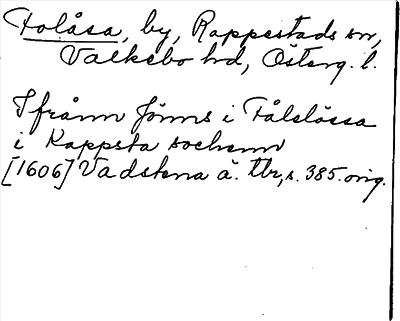 Folåsa, by, Rappestads sn,
Valkebo hd, Österg. l.
Ifrånn Jönns i Fålåssa
i Rappsta sochenn
[1606] Vadstena ä. tbr, s. 385. orig.